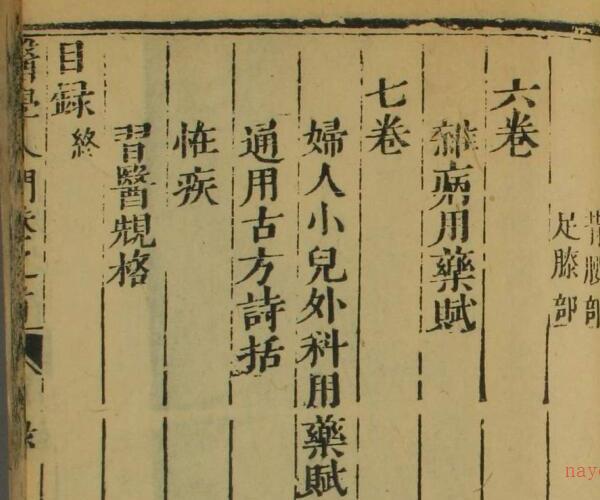 背腰部
足膝部
六卷
雜病用藥賦
七卷
婦人小兒外科用藥賦
通用古方詩括
恠疾
習醫規格
目録終
醫學入門
naye